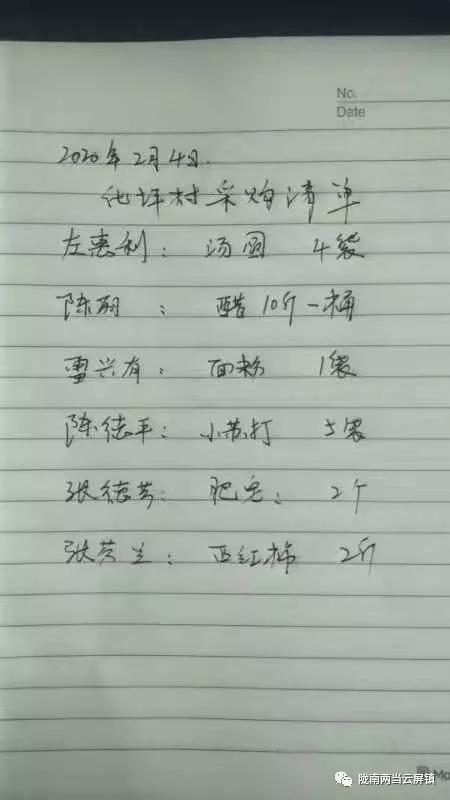 No.
Date
2020年2月4日.
化坪村采购清单
左惠利： 汤圆 4袋
陈丽 ： 醋10斤一桶
雷兴有： 面粉 1袋
陈德平： 小苏打 5袋
张德芳： 肥皂： 2个
张芳兰： 西红柿 2斤
陇南两当云屏镇